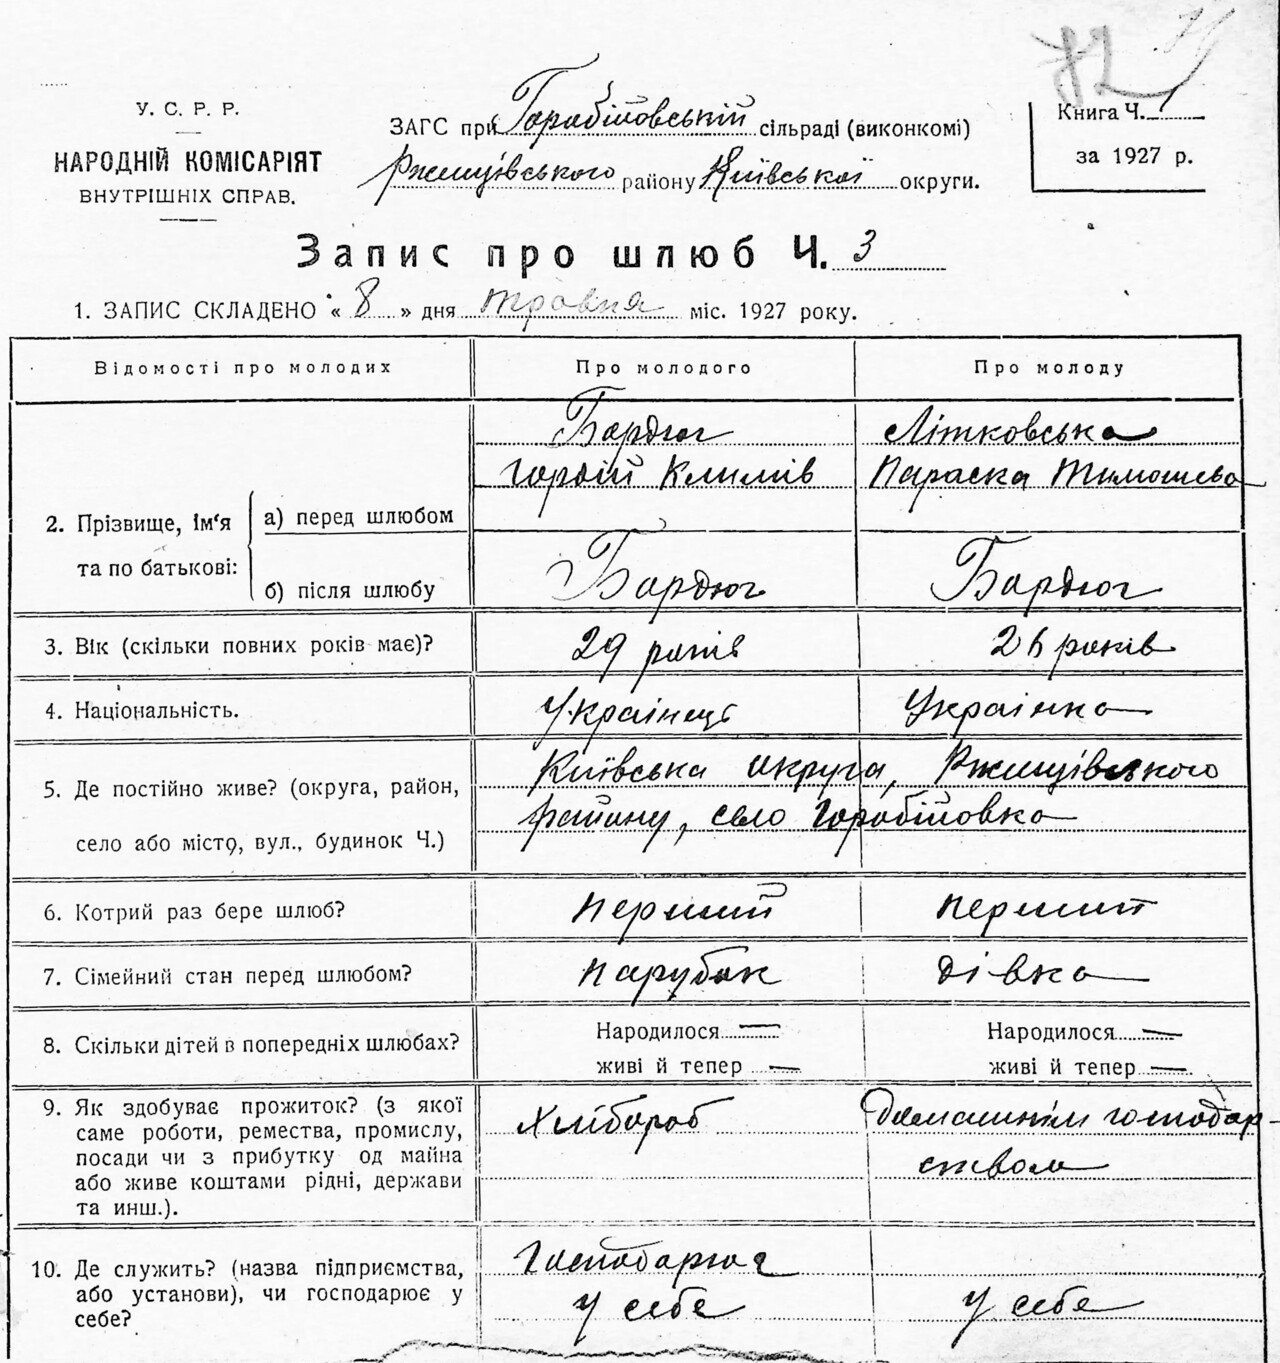 72
У. С. Р. Р.
НАРОДНІЙ КОМІСАРІЯТ
ВНУТРІШНІХ СПРАВ.
ЗАГС при Горобіївській сільраді (виконкомі)
Ржищівського району Київської округи.
Книга Ч. 1
за 1927 р.
Запис про шлюб Ч. 3
1. ЗАПИС СКЛАДЕНО « 8 » дня травня міс. 1927 року.
Відомості про молодих Про молодого Про молоду
2. Прізвище, Ім'я та по батькові:
а) перед шлюбом
Бардюг Літковська
Гордій Климів Параска Тимошева
б) після шлюбу Бардюг Бардюг
3. Вік (скільки повних років має)? 29 років 26 років
4. Національність. Украінець Украінка
5. Де постійно живе? (округа, район,
село або місто, вул., будинок Ч.)
Київська округа, Ржищівського
району, село Горобіївка
6. Котрий раз бере шлюб? перший перший
7. Сімейний стан перед шлюбом? парубок дівка
8. Скільки дітей в попередніх шлюбах? Народилося — Народилося —
живі й тепер — живі й тепер —
9. Як здобуває прожиток? (з якої
саме роботи, ремества, промислу,
посади чи з прибутку од майна
або живе коштами рідні, держави
та инш.).
Хлібороб Домашнім господар-
ством
10. Де служить? (назва підприємства,
або установи), чи господарює у
себе?
Господарює
у себе у себе